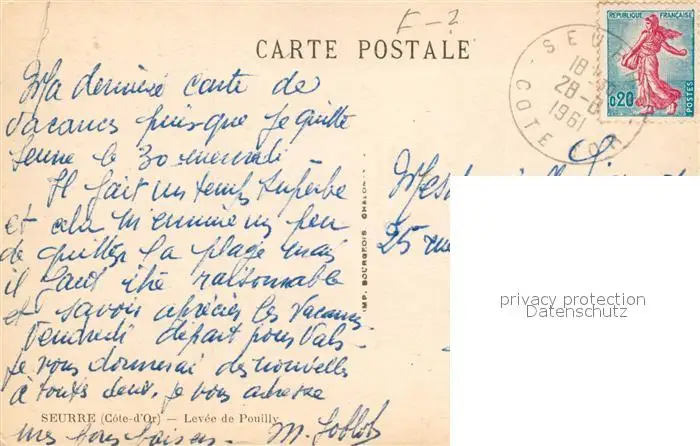 F-2
CARTE POSTALE
REPUBLIQUE FRANÇAISE
0,20
POSTES
SEURRE
18
28-8
1961
COTE D'OR
Ma dernière carte de
vacances puisque je quitte
Seurre le 30 mercredi
Il fait un temps superbe
et cela m'ennuie un peu
de quitter la plage mais
il faut être raisonnable
et savoir apprécier les vacances
Vendredi départ pour Vals
je vous donnerai des nouvelles
à toutes deux. je vous adresse
mes bons baisers.
IMP. BOURGEOIS CHALON
25 rue
privacy protection
Datenschutz
SEURRE (Côte-d'Or) — Levée de Pouilly